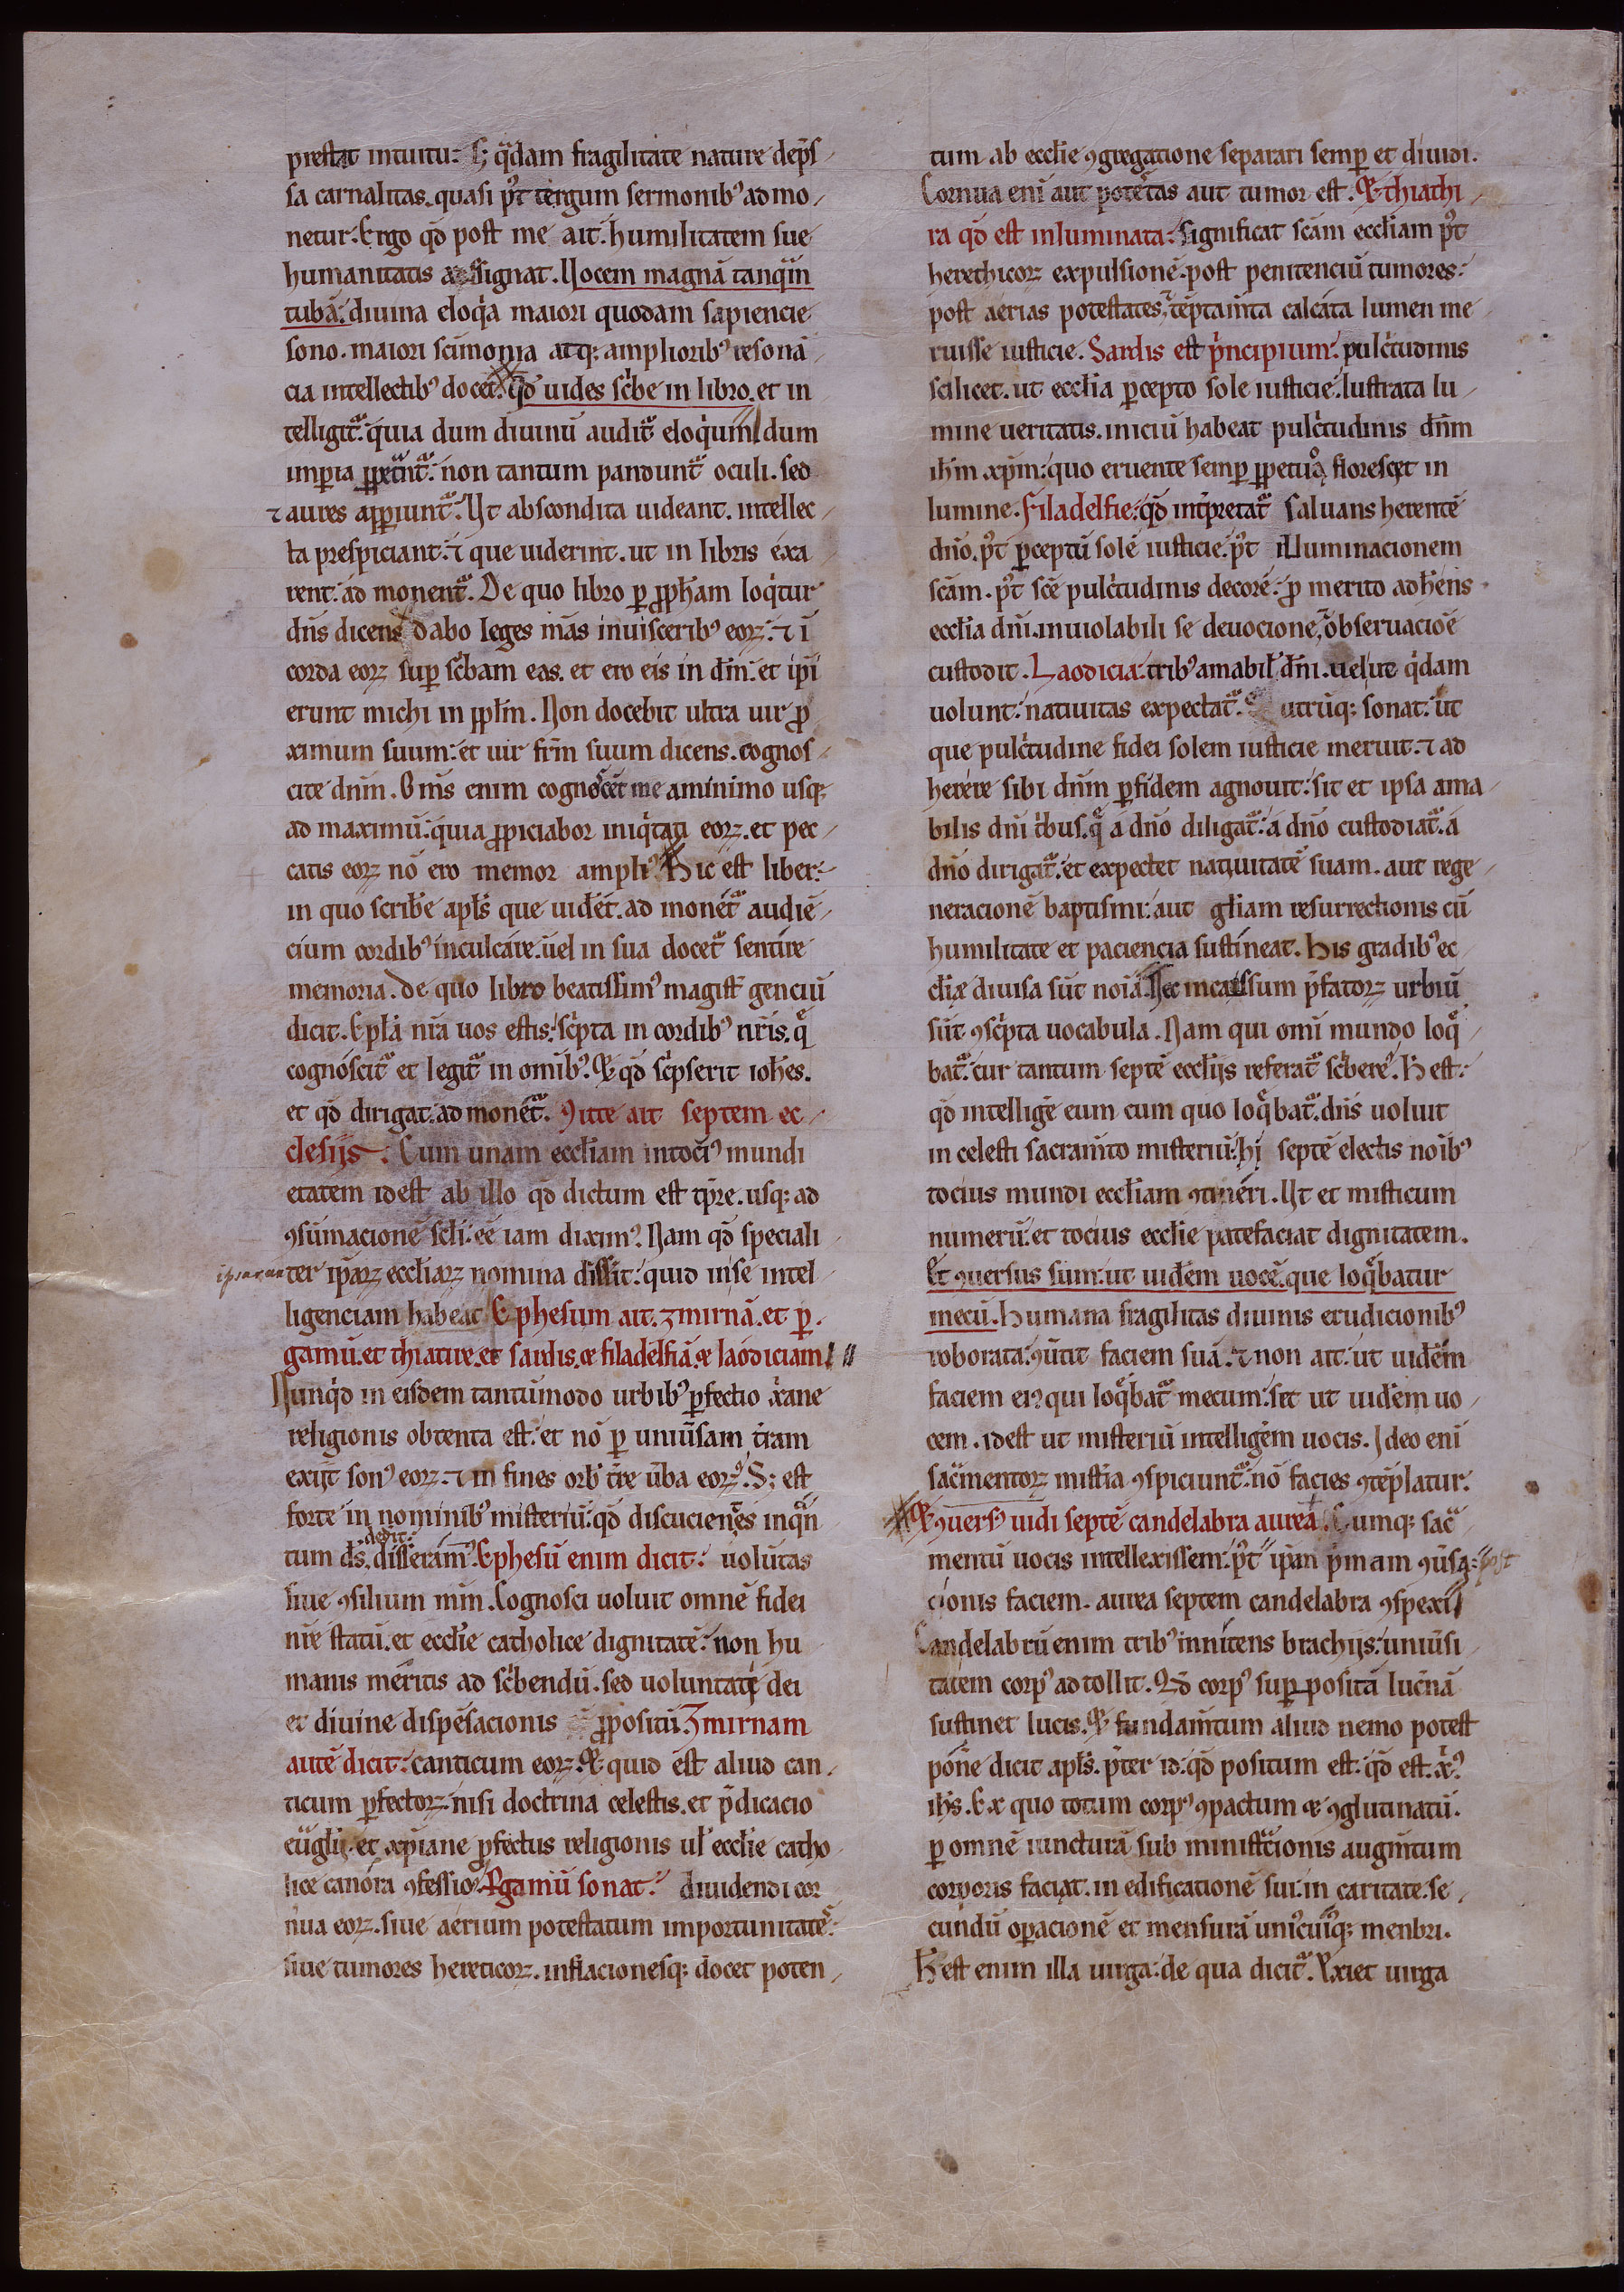 prestat intuitu: S; q̃dam fragilitate nature dep̃s
sa carnalitas. quasi p̾t tergum sermonib⁹ ad mo
netur. Ergo qđ post me ait: humilitatem sue
humanitatis assignat. Uocem magnā tanquā
tubā. diuina eloq̇a maiori quodam sapiencie
sono. maiori scimonia atq; amplioribꝰ resonā
cia intellectibꝰ docet. Qđ uides sc̾be in libro. et in
telligit᷑. quia dum diuinū audit᷑ eloq̇um dum
imꝑia ꝓpetnt᷑: non tantum pandunt᷑ oculi. sed
⁊ aures aꝑiunt᷑. Ut abscondita uideant. intellec
ta prespiciant: ⁊ que uiderint. ut in libris exa
rent: ad monent᷑. De quo libro ꝑ ꝓpħam loq̇tur
dn̄s dicens dabo leges mās in uisceribꝰ eoꝝ: ⁊ ī
corda eoꝝ suꝑ sc̾bam eas. et ero eis in dm̄: et ip̄i
erunt michi in ppl̄m. Non docebit ultra uir ꝓ
ximum suum: et uir frm̄ suum dicens. cognos
cite dn̄m. Om̄s enim cognoscēt me a minimo usq;
ad maximū: quia ꝓpiciabor iniq̇tati eoꝝ. et pec
catis eoꝝ nō ero memor ampliꝰ. Hic est liber:
in quo scribe apłs que uidēt. ad monet᷑ audiē
cium cordibꝰ inculcare. uel in sua docet᷑ sentire
memoria. de quo libro beatissimꝰ magist̄ genciū
dicit. Epl̄a nr̄a uos estis: sc̾pta in cordibꝰ nr̄is. q̄
cognoscit᷑ et legit᷑ in omibꝰ. Et qđ sc̾pserit ioħes.
et qđ dirigat: ad monet᷑. Mitte ait septem ec
clesijs: Cum unam eccliam in tociꝰ mundi
etatem id est ab illo qđ dictum est tp̄re. usq; ad
ꝯsūmacionē scl̄i: eē iam diximꝰ. Nam qđ speciali
ter ip̄aꝝ eccl̄iaꝝ nomina dissit: quid in se intel
ligenciam habeat Ephesum ait. zmirnā. et ꝑ
gamū. et thiatire. et sardis. ⁊ filadelfiā. ⁊ laodiciam.
Nunq̇d in eisdem tantūmodo urbibꝰ ꝑfectio x̄ane
religionis obtenta est: et nō ꝑ uniūsam t̄ram
exijt sonꝰ eoꝝ: ⁊ in fines orbꝰ t̄re ūba eoꝝ? S; est
forte in nominibꝰ misteriū: qđ discucientes inq̄n
dedit.
tum d̄s. disseramꝰ. Ephesū enim dicit: uolūtas
siue ꝯsilium mm̄. Cognosci uoluit omnē fidei
nr̄e statū. et eccl̄ie catholice dignitatē: non hu
manis meritis ad sc̾bendū. sed uoluntate dei
et diuine dispēsacionis ꝓpositū. Zmirnam
autē dicit: canticum eoꝝ. Et quid est aliud can
ticum ꝑfectoꝝ: nisi doctrina celestis. et p̄dicacio
euglij. et xp̄iane ꝑfectus religionis ul̄ eccl̄ie catho
lice canora ꝯfessio? Pgamū sonat: diuidendi cor
nua eoꝝ. siue aerium potestatum importunitates:
siue tumores hereticoꝝ. inflacionesq; docet poten
tum ab eccl̄ie ꝯgregatione separari semꝑ et diuidi.
Cornua eni aut potestas aut tumor est. Et thiathi
ra qđ est inluminata: significat sc̄am eccl̄iam p̾t
herethicoꝝ expulsionē. post penitenciū tumores:
post aerias potestates, ⁊ tēptam̄ta calcata lumen me
ruisse iusticie. Sardis est p̾ncipium: pulc̾tudinis
scilicet. ut eccl̄ia ꝑcepto sole iusticie: lustrata lu
mine ueritatis. iniciū habeat pulc̾tudinis dn̄m
ih̄m xp̄m: quo eruente semꝑ ꝑpetuo florescet in
lumine. Filadelfie: qđ int̾pretat᷑ saluans herentē
dn̄o. p̾t ꝑceptū solē iusticie: p̾t illuminacionem
sc̄am. p̾t sc̄e pulc̾tudinis decorē: ꝓ merito adh̄ens
eccl̄ia dn̄i. inuiolabili se deuocione, ⁊ obseruacioē
custodit. Laodicia: tribꝰ amabil̄ dn̄i. uel ut q̇dam
uolunt: natiuitas expectat᷑. utrūq; sonat: ut
que pulc̾tudine fidei solem iusticie meruit. ⁊ ad
herere sibi dn̄m ꝑ fidem agnouit: sit et ipsa ama
bilis dn̄i t̾bus. q̄ a dn̄o diligat᷑: a dn̄o custodiat᷑. a
dn̄o dirigat᷑. et expectet natiuitatē suam. aut rege
neracionē baptismi: aut gl̄iam resurrectionis cū
humilitate et paciencia sustineat. His gradibꝰ ec
cl̄iæ diuisa sūt noīa. Nec incassum p̄fatoꝝ urbiū
sūt ꝯsc̾pta uocabula. Nam qui omi mundo loq̄
bat᷑. cur tantum septē eccl̄ijs referat᷑ sc̾bere? H̄ est:
qđ intelligē eum cum quo loq̄bat᷑. dn̄s uoluit
in celesti sacram̄to misteriū: hi septē electis noībꝰ
tocius mundi eccl̄iam ꝯtineri. Ut et misticum
numerū: et tocius eccl̄ie patefaciat dignitatem.
Et ꝯuersus sum: ut uiderem uocē. que loq̄batur
mecū. Humana fragilitas diuinis erudicionibꝰ
roborata: ꝯūtit faciem suā. ⁊ non ait: ut uiderem
faciem eiꝰ qui loq̄bat᷑ mecum: set ut uiderem uo
cem. id est ut misteriū intelligerem uocis. Ideo eni
sac̄mentoꝝ mist̄ia ꝯspiciunt᷑: nō facies ꝯtēplatur.
Et ꝯuersꝰ uidi septē candelabra aurea. Cumq; sac̄
mentū uocis intellexissem: p̾t ip̄am p̾mam ꝯūsa
cionis faciem. aurea septem candelabra ꝯspexi.
Candelabrū enim tribꝰ innitens brachijs: uniūsi
tatem corpꝰ ad tollit. Qđ corpꝰ suꝑ positā lucernā
sustinet lucis. Et fundam̄tum aliud nemo potest
ponē dicit apłs. p̄ter id: qđ positum est: qđ est x̄ꝰ
ih̄s. Ex quo totum corpꝰ ꝯpactum ⁊ ꝯglutinatū.
ꝑ omnē iuncturā sub ministracionis augm̄tum
corporis faciat. in edificationē sui: in caritate. se
cundū oꝑacionē et mensurā uniꝰcuiꝰq; menbri.
H̄ est enim illa uirga: de qua dicit᷑. Exiet uirga